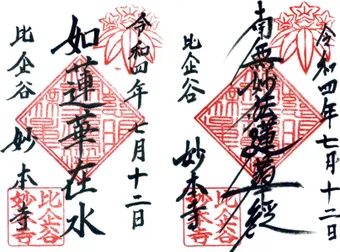 令和四年七月十二日
南無妙法蓮華經
比企谷 妙本寺
比企谷
妙本寺
令和四年七月十二日
如蓮華在水
比企谷 妙本寺
比企谷
妙本寺